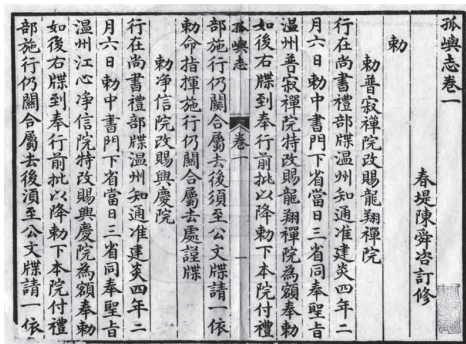 孤嶼志卷一
春堤陳舜咨訂修
勅
勅普寂禪院改賜龍翔禪院
行在尚書禮部牒温州知通准建炎四年二
月六日勅中書門下省當日三省同奉聖㫖
温州普寂禪院特改賜龍翔禪院為額奉勅
如後右牒到奉行前批以降勅下本院付禮
部施行仍關合屬去後須至公文牒請一依
孤嶼志
卷一
一
勅命指揮施行仍關合屬去處謹牒
勅净信院改賜興慶院
行在尚書禮部牒温州知通准建炎四年二
月六日勅中書門下省當日三省同奉聖㫖
温州江心净信院特改賜興慶院為額奉勅
如後右牒到奉行前批以降勅下本院付禮
部施行仍關合屬去後須至公文牒請一依